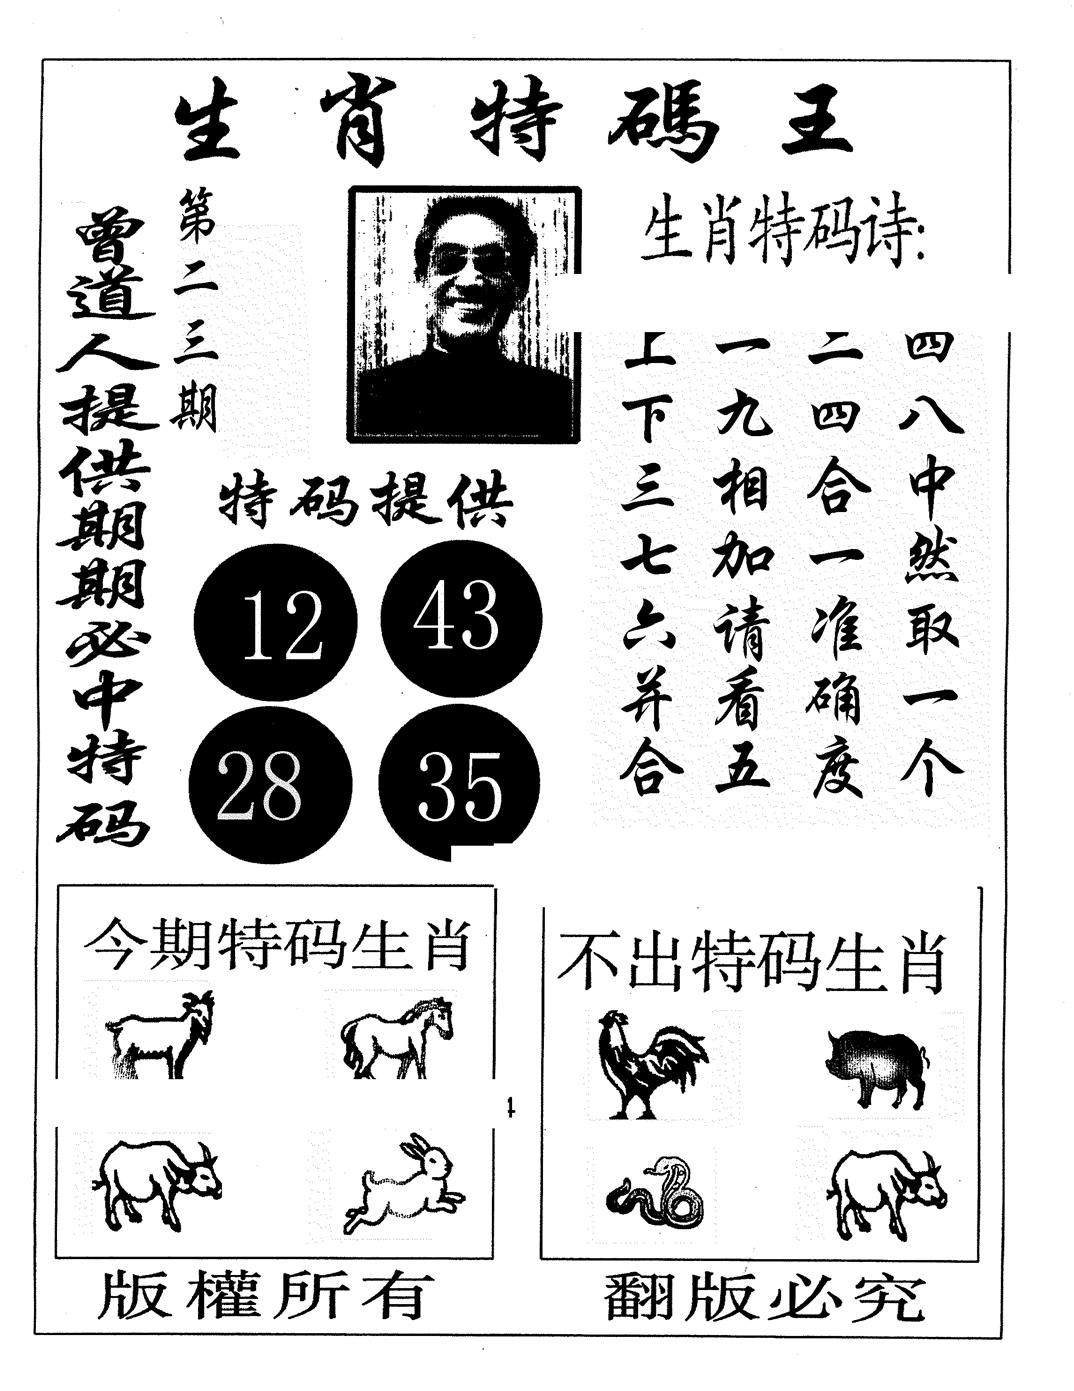 生肖特碼王
第二三期
曾道人提供期期必中特码
生肖特码诗:
上下三七六并合
一九相加请看五
二四合一准确度
四八中然取一个
特码提供
12 43
28 35
今期特码生肖
不出特码生肖
版權所有
翻版必究